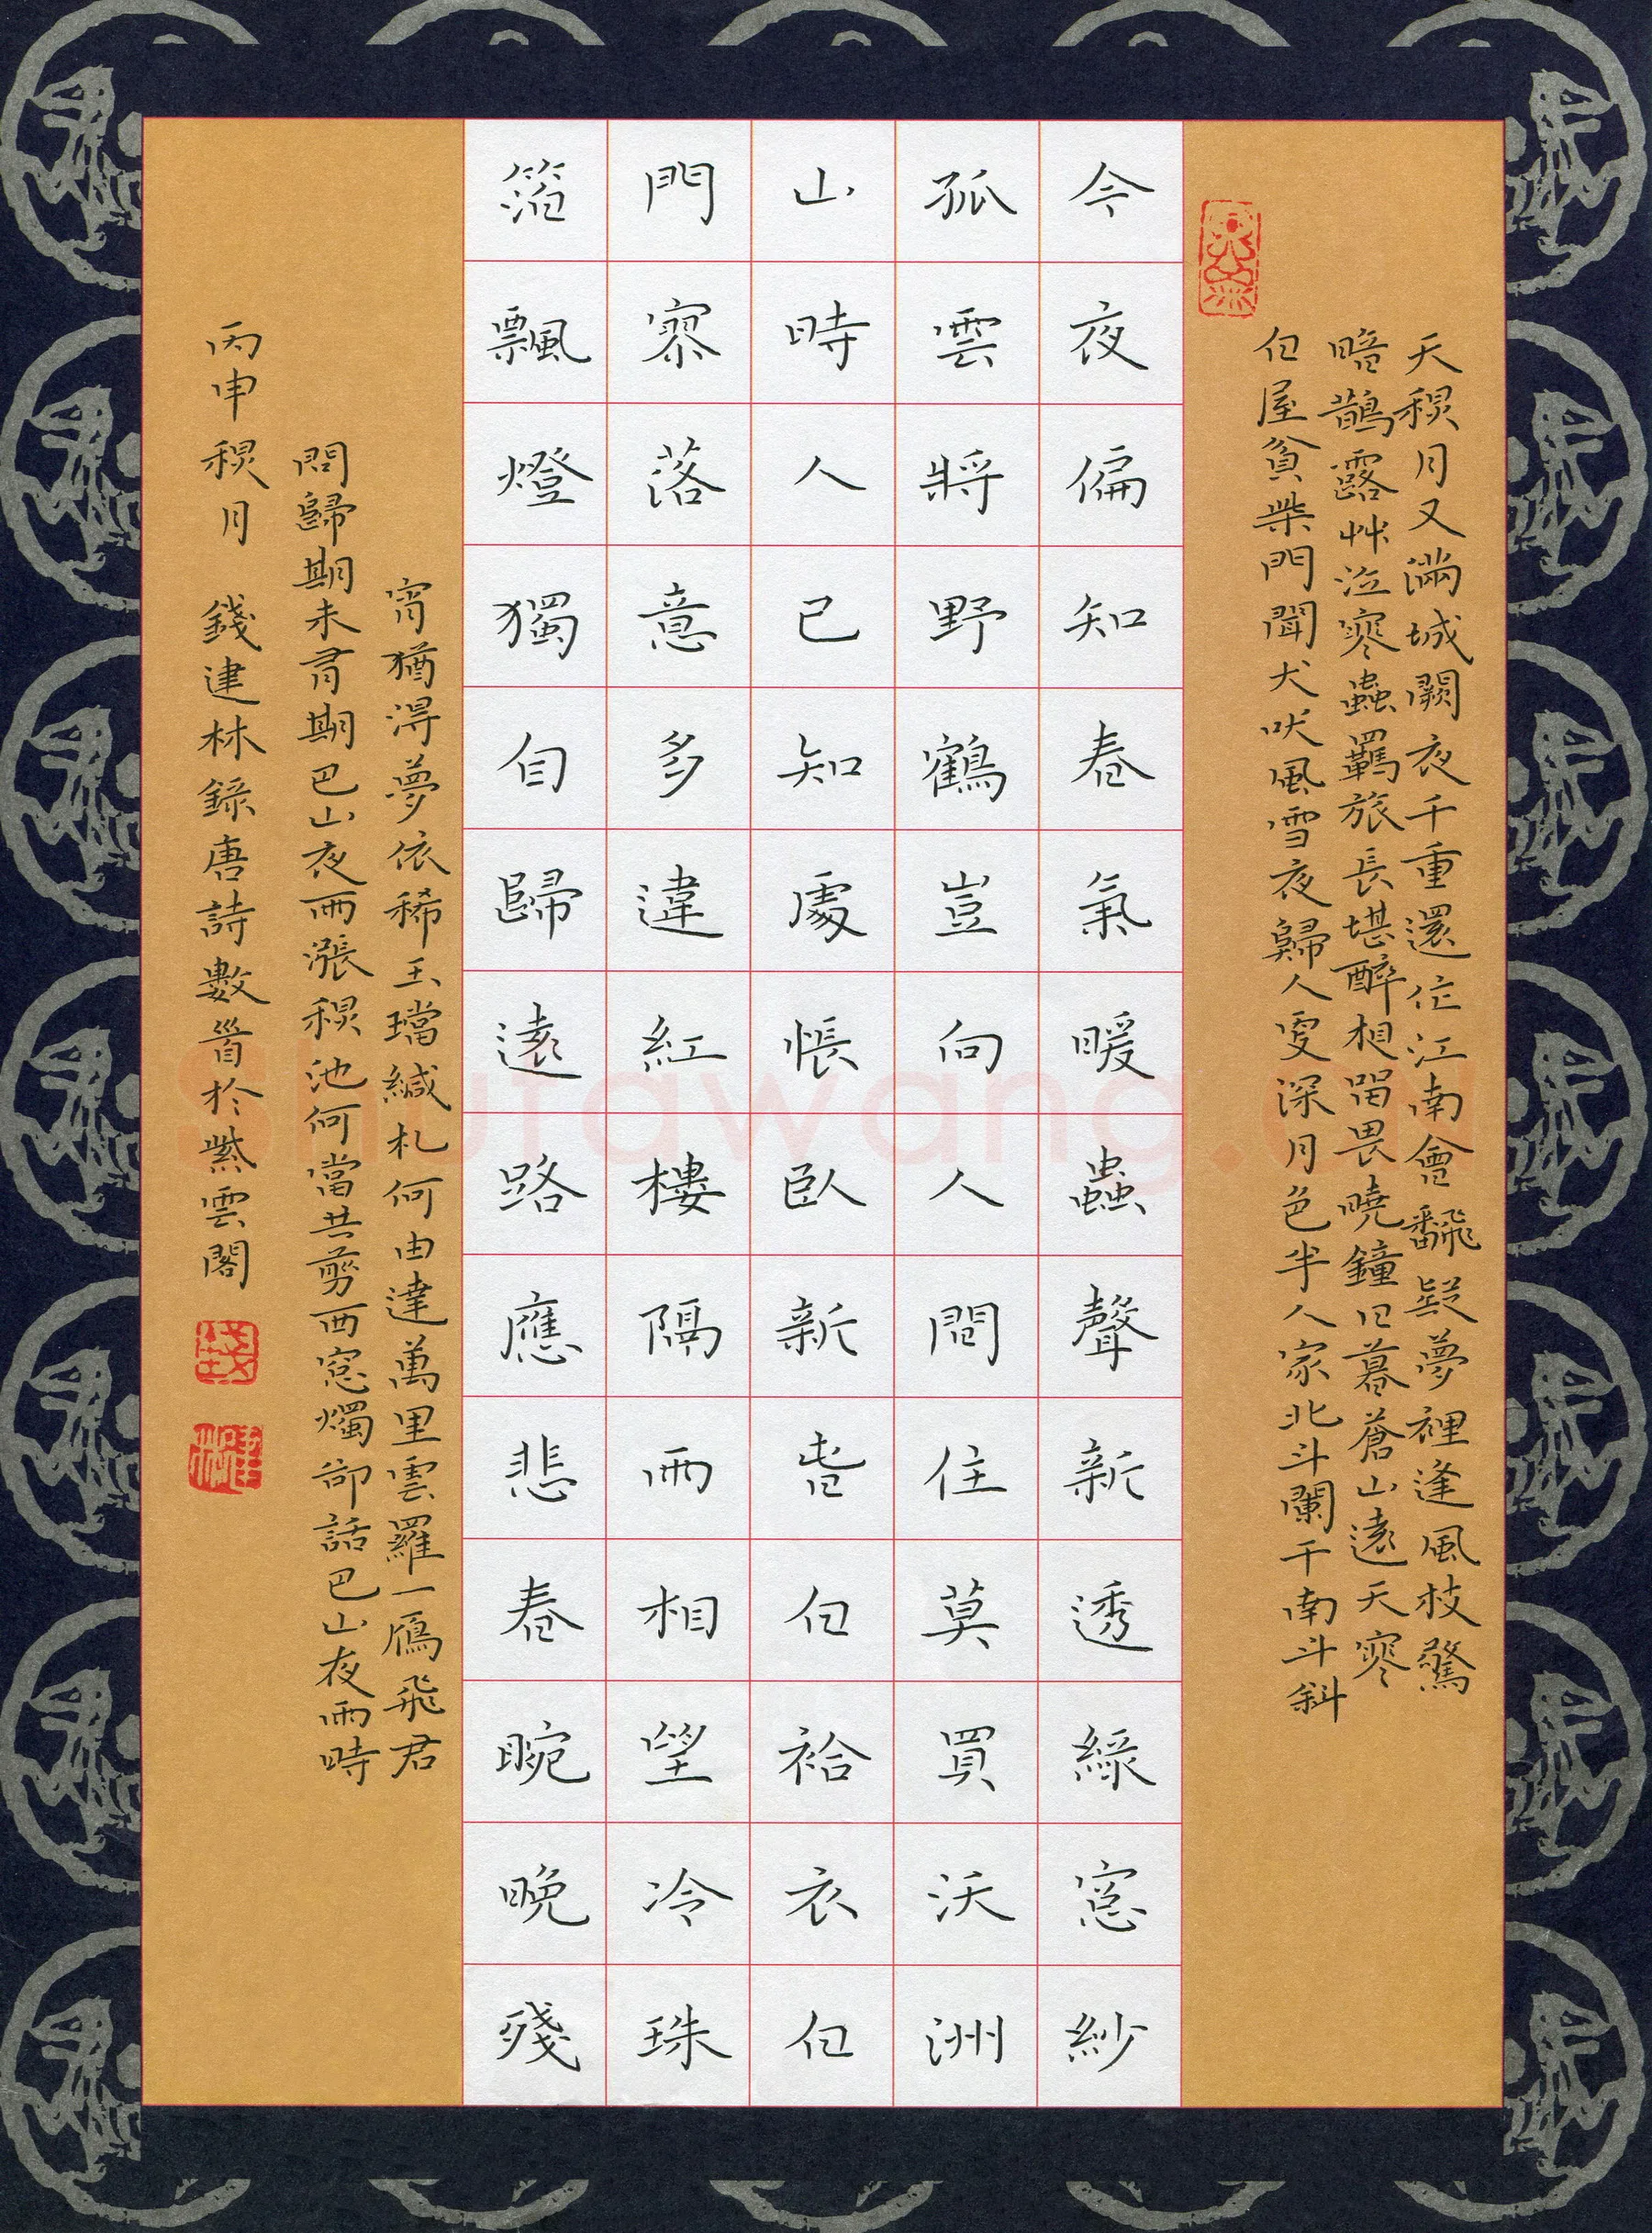 天穐月又滿城闕夜千重還作江南會翻疑夢裡逢風枝驚
暗鵲露艸泣寒蟲羈旅長堪醉相留畏曉鐘日暮蒼山遠天寒
白屋貧柴門聞犬吠風雪夜歸人更深月色半人家北斗闌干南斗斜
今夜偏知春氣暖蟲聲新透綠窻紗
孤雲將野鶴豈向人間住莫買沃洲
山時人已知處悵臥新春白袷衣白
門寥落意多違紅樓隔雨相望冷珠
箔飄燈獨自歸遠路應悲春晼晚殘
宵猶得夢依稀玉璫緘札何由達萬里雲羅一鴈飛君
問歸期未有期巴山夜雨漲穐池何當共剪西窻燭卻話巴山夜雨時
丙申穐月 錢建林錄唐詩數首於紫雲閣
錢
建林
Shufawang.CN